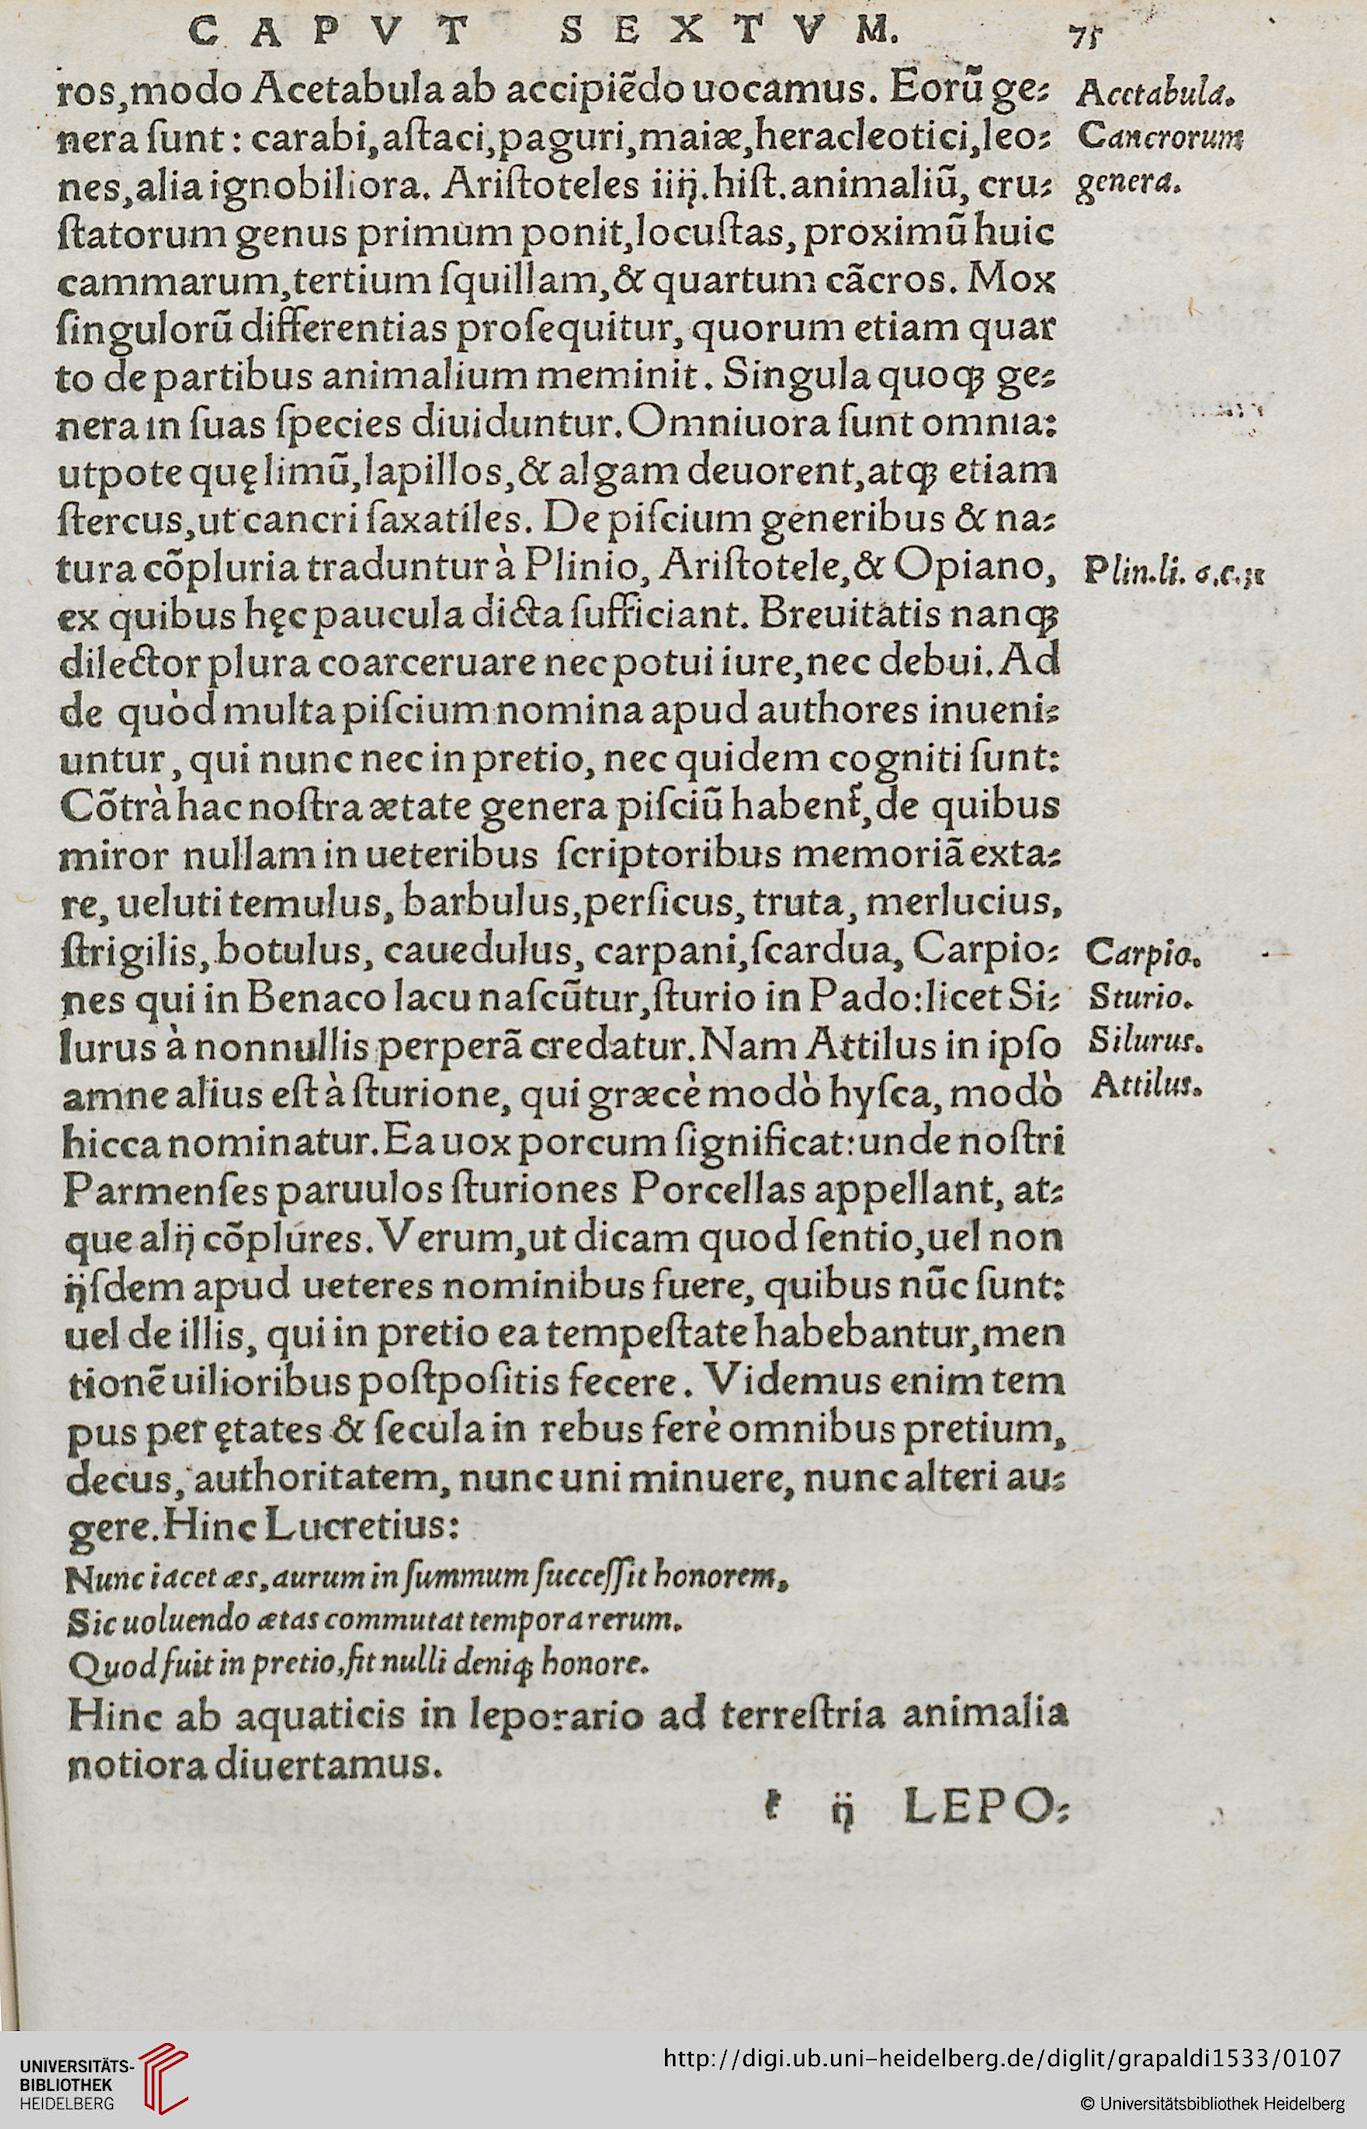 CAPVT SEXTVM. 75
ros,modo Acetabula ab accipiẽdo uocamus. Eorũ ge⸗
Acetabula.
nera ſunt: carabi,aſtaci,paguri,maiæ,heracleotici,leo⸗
Cancrorum
nes,alia ignobiliora. Ariſtoteles iiij.hiſt.animaliũ, cru⸗
genera.
ſtatorum genus primùm ponit,locuſtas, proximũ huic
cammarum,tertium ſquillam,& quartum cãcros. Mox
ſingulorũ differentias proſequitur, quorum etiam quar
to de partibus animalium meminit. Singula quoqꝫ ge⸗
nera in ſuas ſpecies diuiduntur. Omniuora ſunt omnia:
utpote quę limũ,lapillos,& algam deuorent,atqꝫ etiam
ſtercus,ut cancri ſaxatiles. De piſcium generibus & na⸗
tura cõpluria traduntur à Plinio, Ariſtotele,& Opiano,
Plin.li. 6.c.
ex quibus hęc paucula dicta ſufficiant. Breuitatis nanqꝫ
dilector plura coarceruare nec potui iure,nec debui. Ad
de quòd multa piſcium nomina apud authores inueni⸗
untur, qui nunc nec in pretio, nec quidem cogniti ſunt:
Cõtrà hac noſtra ætate genera piſciũ habent̃,de quibus
miror nullam in ueteribus ſcriptoribus memoriã exta⸗
re, ueluti temulus, barbulus,perſicus, truta, merlucius,
ſtrigilis, botulus, cauedulus, carpani,ſcardua, Carpio⸗
Carpio.
nes qui in Benaco lacu naſcũtur,ſturio in Pado:licet Si⸗
Sturio.
lurus à nonnullis perperã credatur. Nam Attilus in ipſo
Silurus.
amne alius eſt à ſturione, qui græcè modò hyſca, modò
Attilus.
hicca nominatur. Ea uox porcum ſignificat: unde noſtri
Parmenſes paruulos ſturiones Porcellas appellant, at⸗
que alij cõplures. Verum,ut dicam quod ſentio,uel non
ijſdem apud ueteres nominibus fuere, quibus nũc ſunt:
uel de illis, qui in pretio ea tempeſtate habebantur,men
tionẽ uilioribus poſtpoſitis fecere. Videmus enim tem
pus per ętates & ſecula in rebus ferè omnibus pretium,
decus, authoritatem, nunc uni minuere, nunc alteri au⸗
gere. Hinc Lucretius:
Nunc iacet æs, aurum in ſummum ſucceſſit honorem,
Sic uoluendo ætas commutat tempora rerum.
Quod fuit in pretio, fit nulli deniqꝫ honore.
Hinc ab aquaticis in leporario ad terreſtria animalia
notiora diuertamus.
ij LEPO⸗
UNIVERSITÄTS-
BIBLIOTHEK
HEIDELBERG
http://digi.ub.uni-heidelberg.de/diglit/grapaldi1533/0107
© Universitätsbibliothek Heidelberg